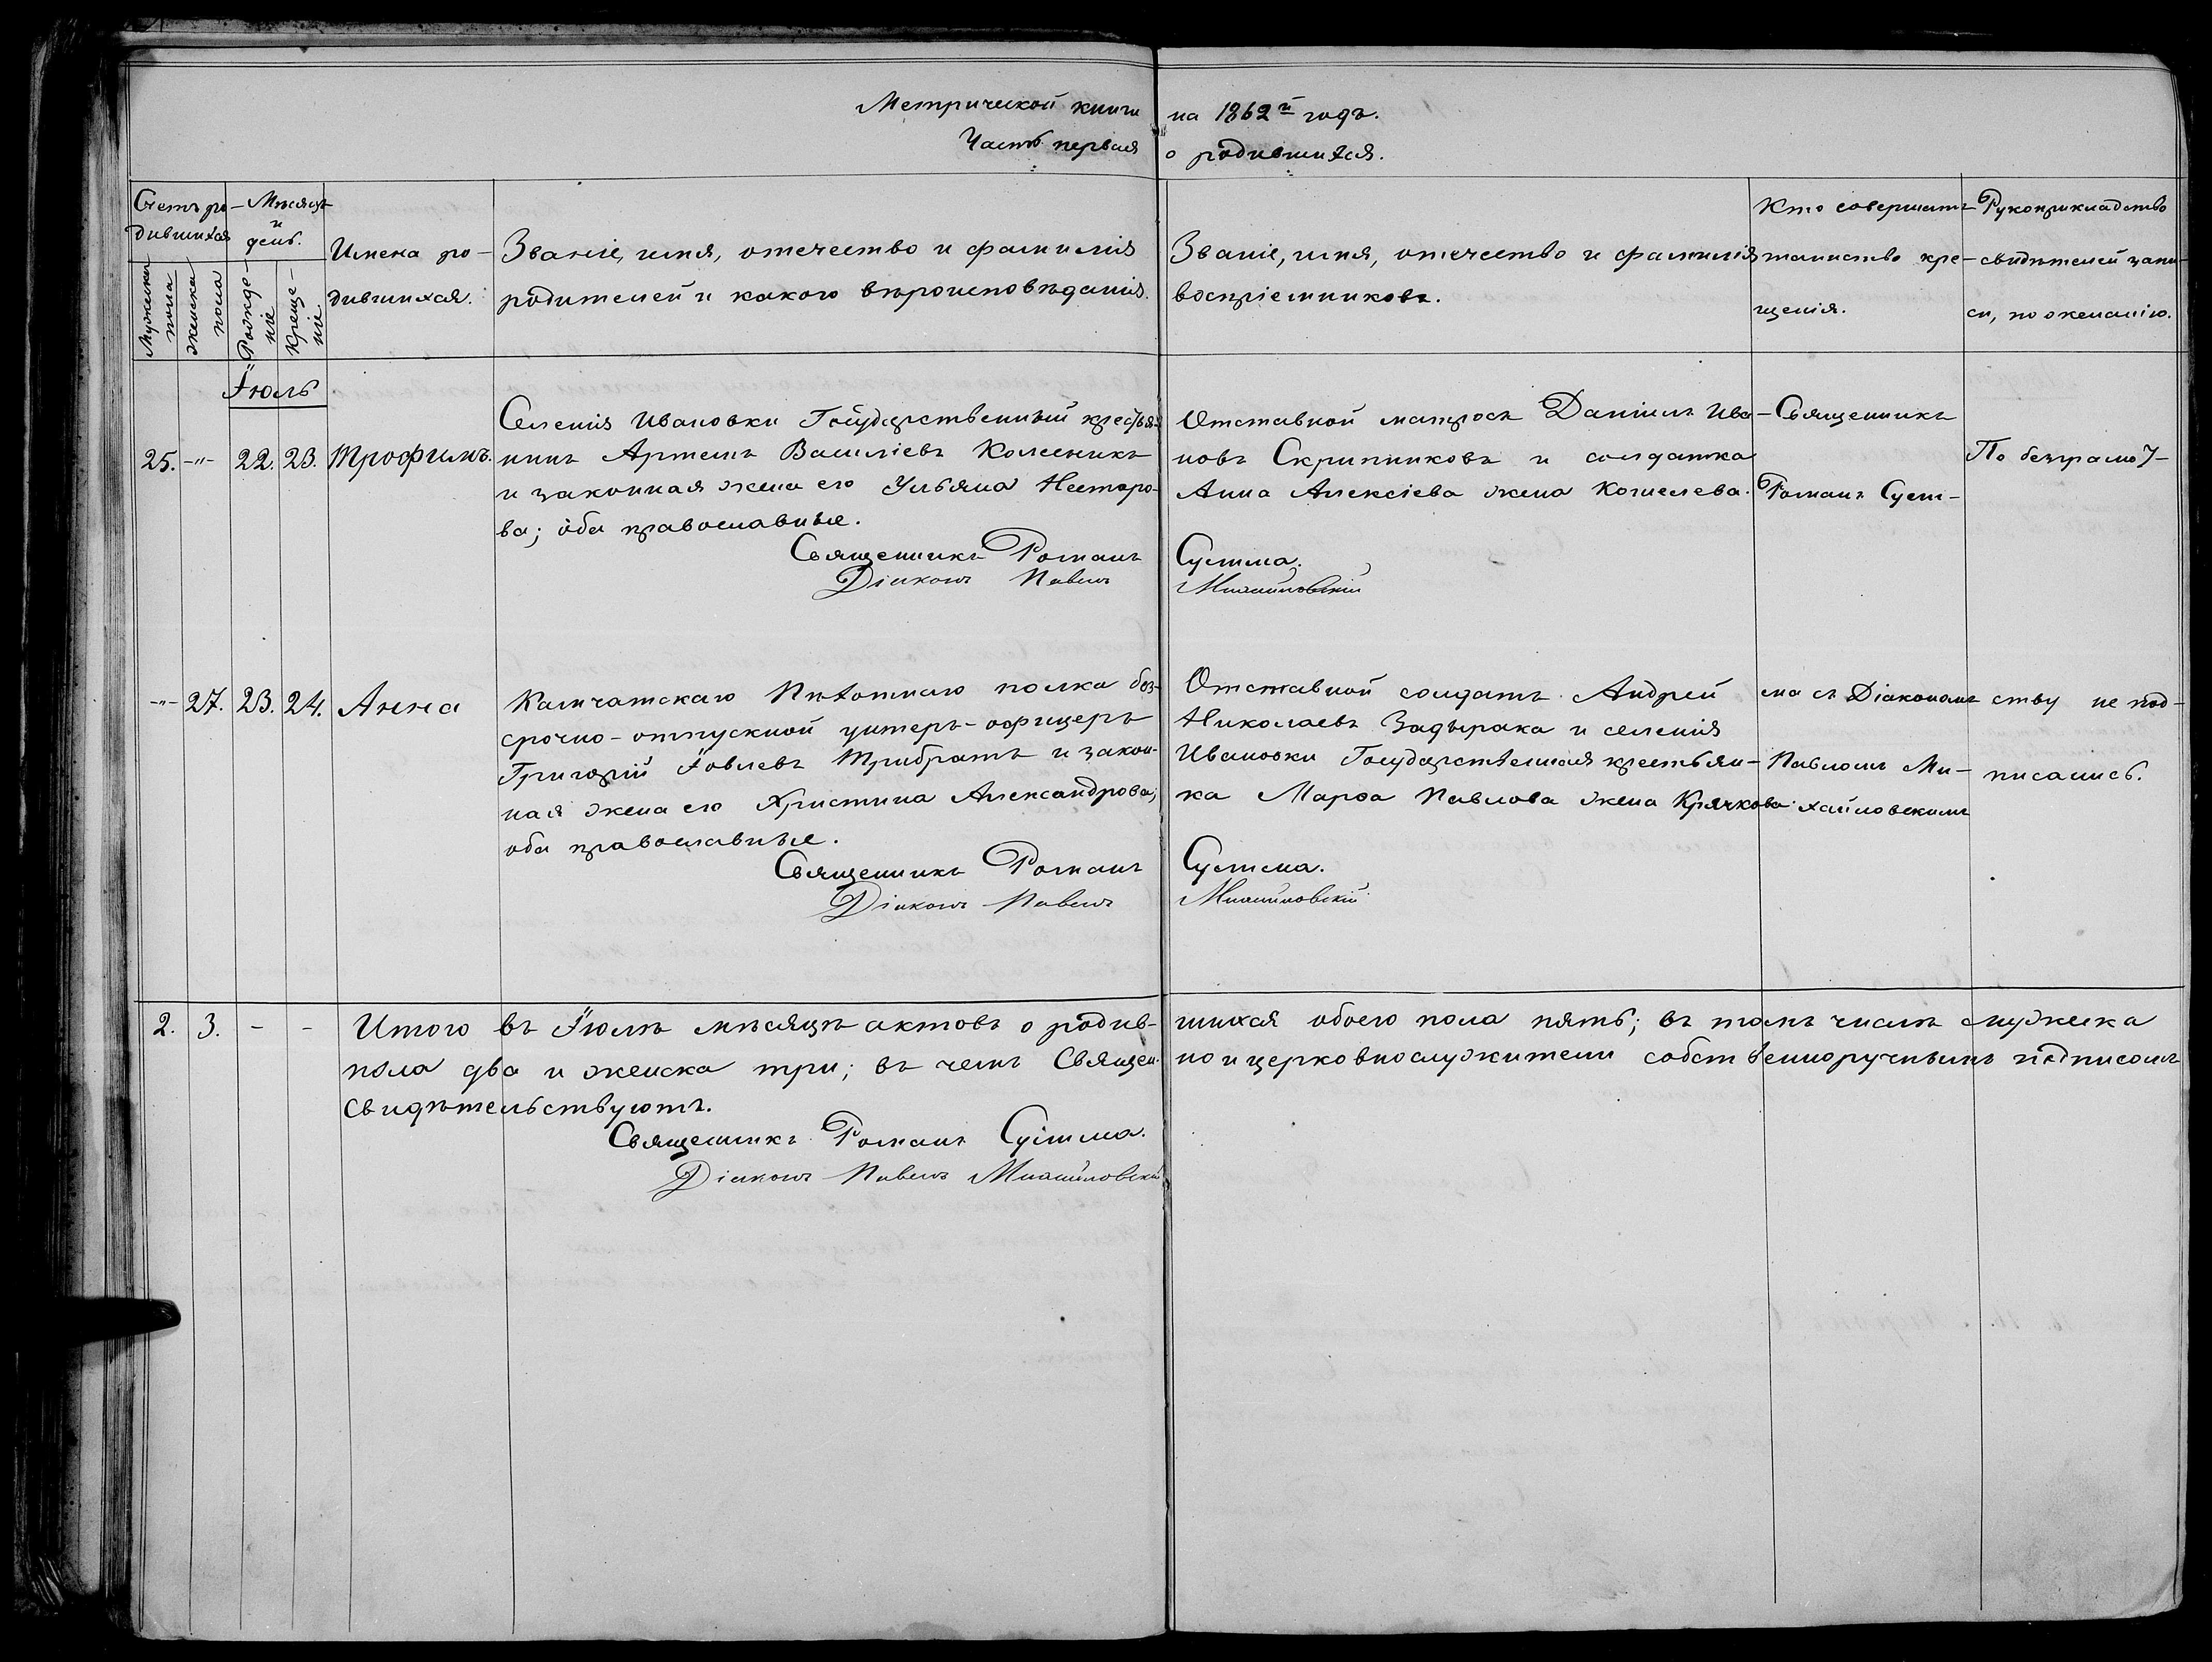 Метрической книги на 1862й годъ.
Часть первая о родившихся.
Счетъ ро-
дившихся
Мужеска
пола
Женска
пола
Мѣсяцъ
и
день.
Рожде-
ніе
Креще-
ніе
Имена ро-
дившихся.
Званіе, имя, отечество и фамилія
родителей и какого вѣроисповѣданія.
Званіе, имя, отечество и фамилія
воспріемниковъ.
Кто совершалъ
таинство кре-
щенія.
Рукоприкладство
свидѣтелей запи-
си, по желанію.
Іюль
25. -"- 22. 23. Трофимъ.
Селенія Ивановки Государственный крестья-
нинъ Артемъ Василіевъ Колесникъ
и законная жена его Ульяна Несторо-
ва; оба православные.
Отставной матросъ Даніилъ Ива-
новъ Скрипниковъ и солдатка
Анна Алексіева жена Кошелева.
Священникъ
Романъ Сует-
По безграмот-
Священникъ Романъ
Діаконъ Павелъ
Михайловскій
-"- 27. 23. 24. Анна
Камчатскаго Пѣхотнаго полка без-
срочно-отпускной унтеръ-офицеръ
Григорій Іовлевъ Трибратъ и закон-
ная жена его Христина Александрова;
оба православные.
Отставной солдатъ Андрей
Николаевъ Задырака и селенія
Ивановки Государственная крестьян-
ка Марѳа Павлова жена Крячкова.
ма съ Діакономъ
Павломъ Ми-
хайловскимъ
ству не под-
писались.
Священникъ Романъ
Діаконъ Павелъ
Михайловскій
2. 3. - - Итого въ Іюлѣ мѣсяцѣ актовъ о родив- шихся обоего пола пять; въ томъ числѣ мужеска
пола два и женска три; въ чемъ Священ- но и церковнослужители собственноручнымъ подписомъ
свидѣтельствуютъ.
Священникъ Романъ
Діаконъ Павелъ Михайловскій